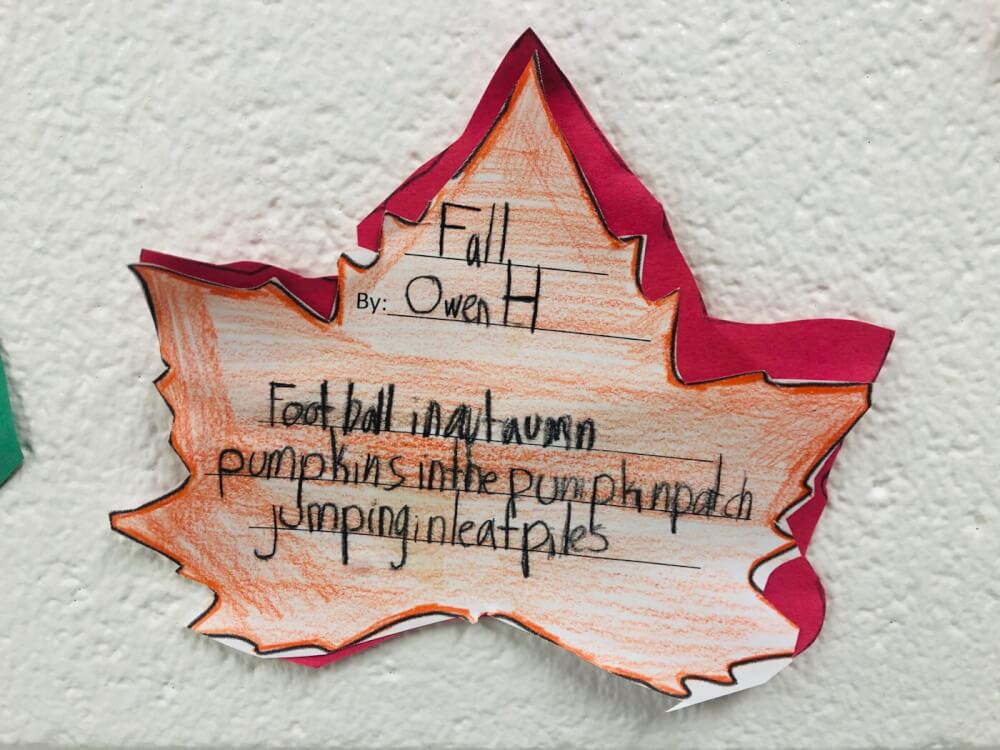 Fall
By: Owen H
Foot ball in autaumn
pumpkins in the pumpkin patch
jumping in leaf piles